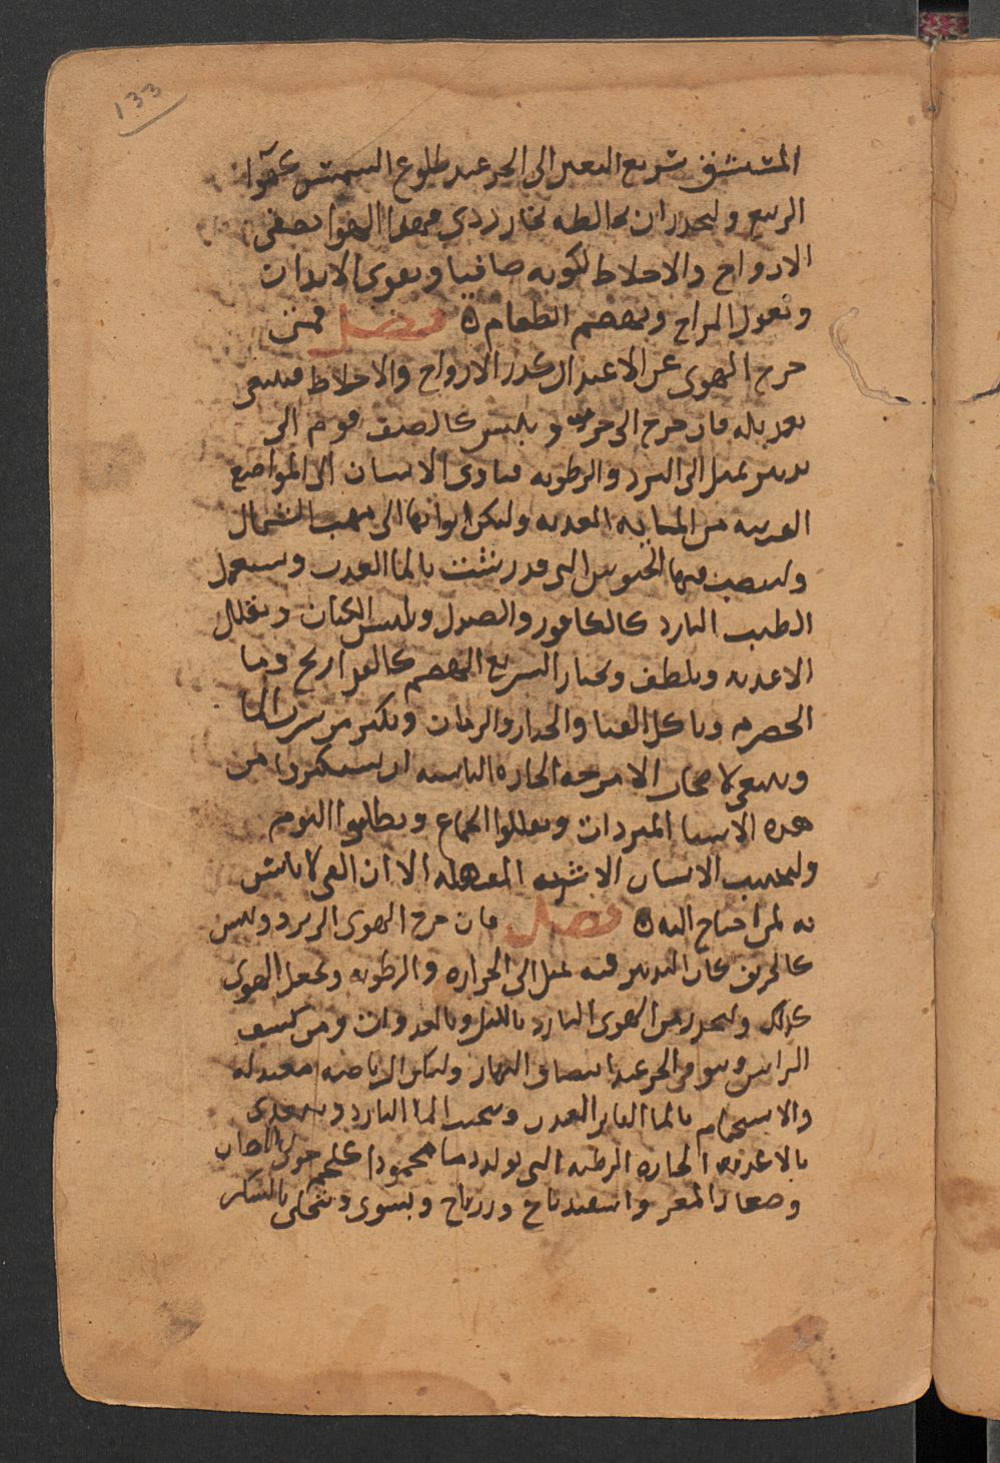 133
المستنشق سريع التغير الى الحر عند طلوع الشمس كهوآ
الربيع وليحذر ان يخالطه بخار ردى فهذا الهوا يصفى
الارواح والاخلاط لكونه صافيا ويقوى الابدان
ويعدل المزاج ويهضم الطعام ٥ فصل فمتى
خرج الهوى عن الاعتدال كدر الارواح والاخلاط فينبغى
تعديله فان خرج الى حر ويبس كالصيف قوم الى
تدبير يميل الى البرد والرطوبه فياوى الانسان الى المواضع
القريبه من المياه العذبه وليكن ابوابها الى مهب الشمال
ولينصب فيها الخيوش التى قد رشت بالما العذب ويستعمل
الطيب البارد كالكافور والصندل ويلبس الكتان ويقلل
الاغذيه ويلطف ويختار السريع الهضم كالفراريج وما
الحصرم وياكل القثا والخيار والرمان ويكثر من شرب الما
وينبغى لاصحاب الامزجه الحاره اليابسه ان يستكثروا من
هذه الاشيا المبردات ويقللوا الجماع ويطلبوا النوم
وليجتنب الانسان الاشربه المسهله الا ان القى لا باس
به لمن احتاج اليه ٥ فصل فان خرج الهوى الى برد ويبس
كالخريف كان التدبير فيه يميل الى الحراره والرطوبه ويجعل الهوى
كذلك وليحذر من الهوى البارد بالليل وبالغدوات ومن كشف
الراس ويتوقى الحر عند انتصاف النهار ولتكن الرياضه معتدله
والاستحمام بالما الفاتر العذب ويتجنب الما البارد ويغتدى
بالاغذيه الحاره الرطبه التى تولد دما محمودا كلحم حولى الضان
وصغار المعز واسفيدباج وزيرباج ويشوى ويتحلى بالسكر